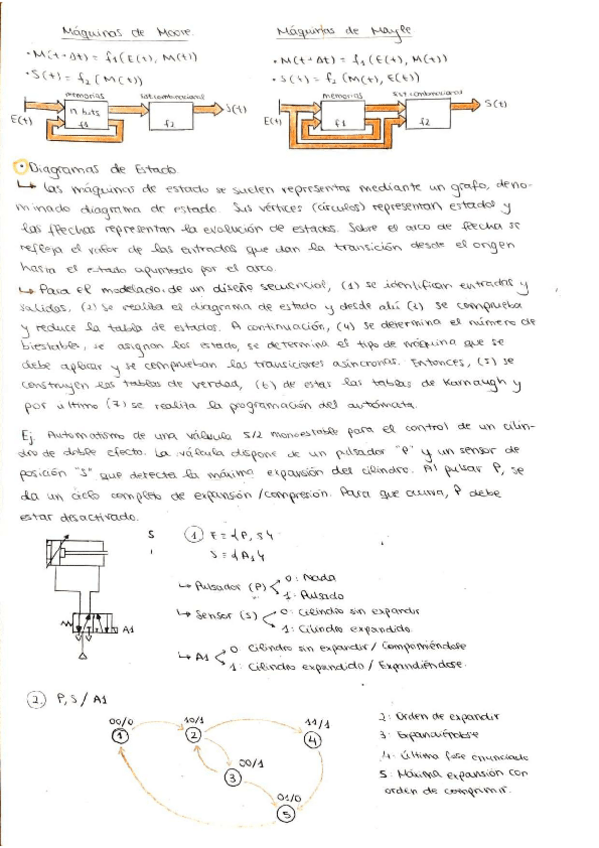 Máquinas de Moore.
Máquinas de Mayle
• M(t+Δt) = f1(E(t), M(t))
• M(t+Δt) = f1(E(t), M(t))
• S(t) = f2(M(t))
• S(t) = f2(M(t), E(t))
memorias
sist combinacional
memorias
sist combinacional
E(t)
n bits
f1
f2
S(t)
E(t)
f1
f2
S(t)
• Diagramas de Estado.
↳ Las máquinas de estado se suelen representar mediante un grafo, deno-
minado diagrama de estado. Sus vértices (círculos) representan estados y
las flechas representan la evolución de estados. Sobre el arco de flecha se
refleja el valor de las entradas que dan la transición desde el origen
hasta el estado apuntado por el arco.
↳ Para el modelado de un diseño secuencial, (1) se identifican entradas y
salidas, (2) se realiza el diagrama de estado y desde ahí (3) se comprueba
y reduce la tabla de estados. A continuación, (4) se determina el número de
biestables, se asignan los estado, se determina el tipo de máquina que se
debe aplicar y se comprueban las transiciones asíncronas. Entonces, (5) se
construyen las tablas de verdad, (6) de estas las tablas de Karnaugh y
por último (7) se realiza la programación del autómata.
Ej. Automatismo de una válvula 5/2 monoestable para el control de un cilin-
dro de doble efecto. La válvula dispone de un pulsador "P" y un sensor de
posición "S" que detecta la máxima expansión del cilindro. Al pulsar P, se
da un ciclo completo de expansión/compresión. Para que ocurra, P debe
estar desactivado.
S
① E = {P, S}
S = {A1}
↳ Pulsador (P) 0: Nada
1: Pulsado
↳ Sensor (S) 0: Cilindro sin expandir
1: Cilindro expandido.
A1
↳ A1 0 Cilindro sin expandir / Comprimiéndose
1: Cilindro expandido / Expandiéndose.
② P, S / A1
00/0
10/1
11/1
1
2
4
00/1
3
01/0
5
2: Orden de expandir
3: Expandiéndose
4: Última fase
5: Máxima expansión con
orden de comprimir.